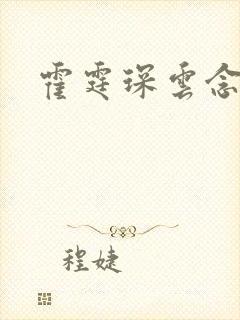 霍霆琛雲念
程婕